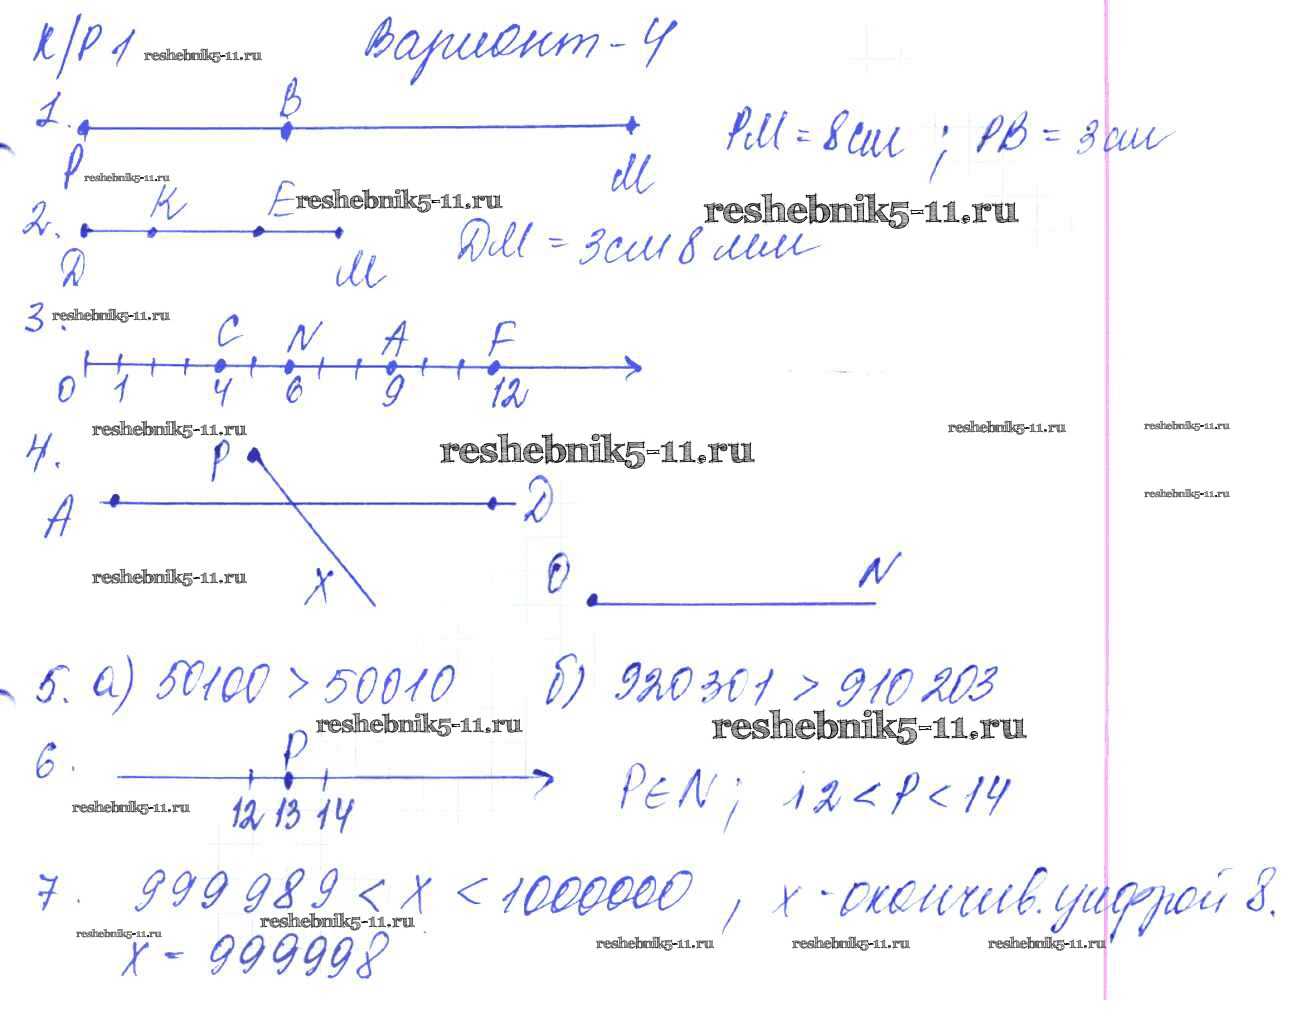 К/Р 1 reshebnik5-11.ru Вариант - 4
1. P B M PM = 8 см ; PB = 3 см
reshebnik5-11.ru
reshebnik5-11.ru reshebnik5-11.ru
2. D K E M DM = 3 см 8 мм
reshebnik5-11.ru
3. C N A F
0 1 4 6 9 12
reshebnik5-11.ru reshebnik5-11.ru reshebnik5-11.ru reshebnik5-11.ru
4. P
A D
reshebnik5-11.ru
reshebnik5-11.ru X O N
5. а) 50100 > 50010 б) 920 301 > 910 203
reshebnik5-11.ru reshebnik5-11.ru
6. P
12 13 14 P ∈ N ; 12 < P < 14
reshebnik5-11.ru
7. 999 989 < X < 1000000 , x - окончив. цифрой 8.
reshebnik5-11.ru
reshebnik5-11.ru reshebnik5-11.ru reshebnik5-11.ru reshebnik5-11.ru
x = 999998